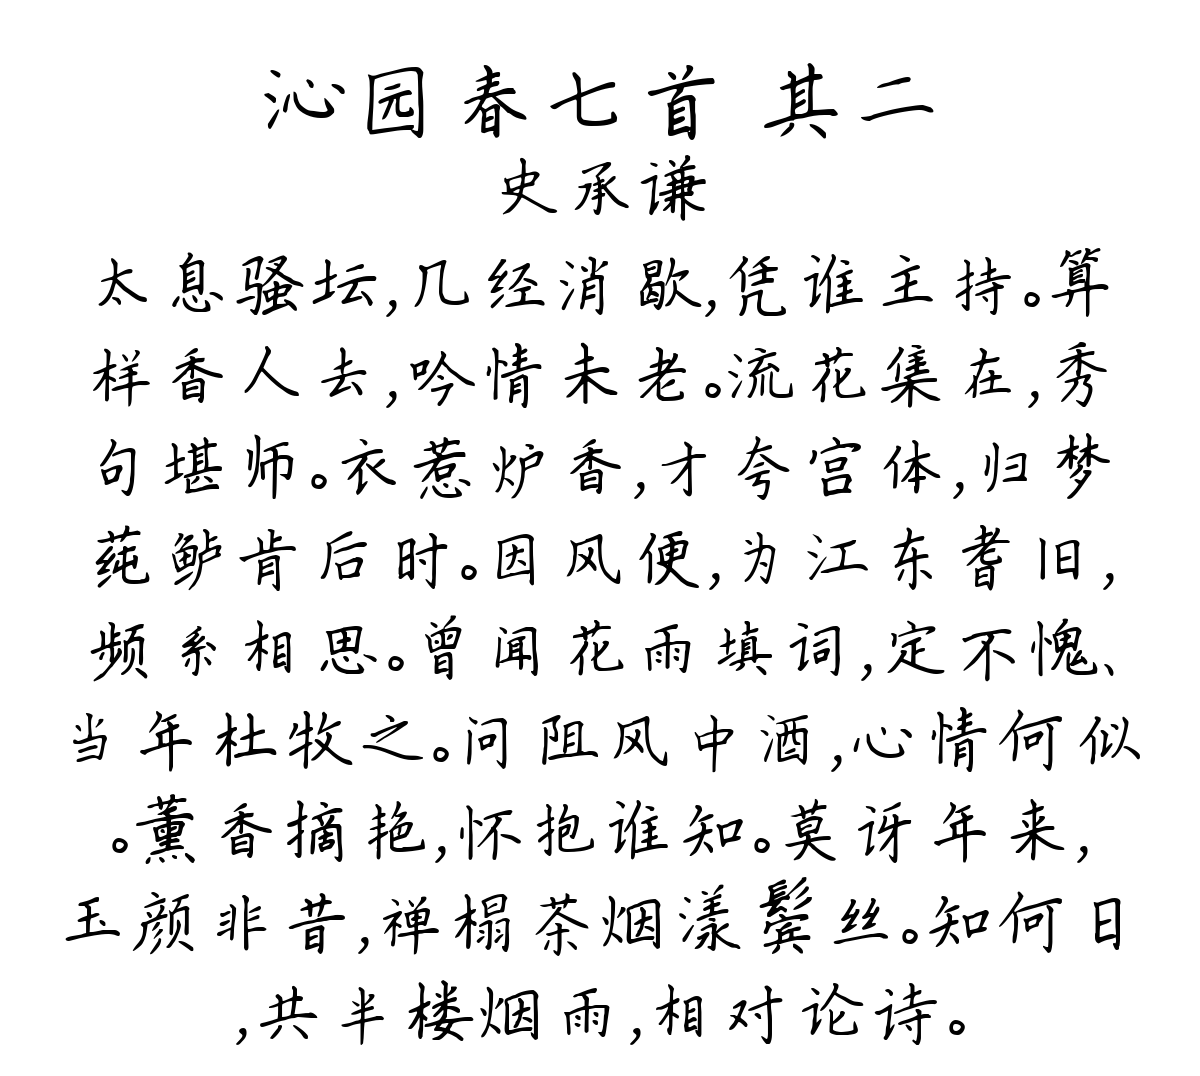 沁园春七首 其二
史承谦
太息骚坛,几经消歇,凭谁主持。算
样香人去,吟情未老。流花集在,秀
句堪师。衣惹炉香,才夸宫体,归梦
莼鲈肯后时。因风便,为江东耆旧,
频系相思。曾闻花雨填词,定不愧、
当年杜牧之。问阻风中酒,心情何似
。薰香摘艳,怀抱谁知。莫讶年来,
玉颜非昔,禅榻茶烟漾鬓丝。知何日
,共半楼烟雨,相对论诗。